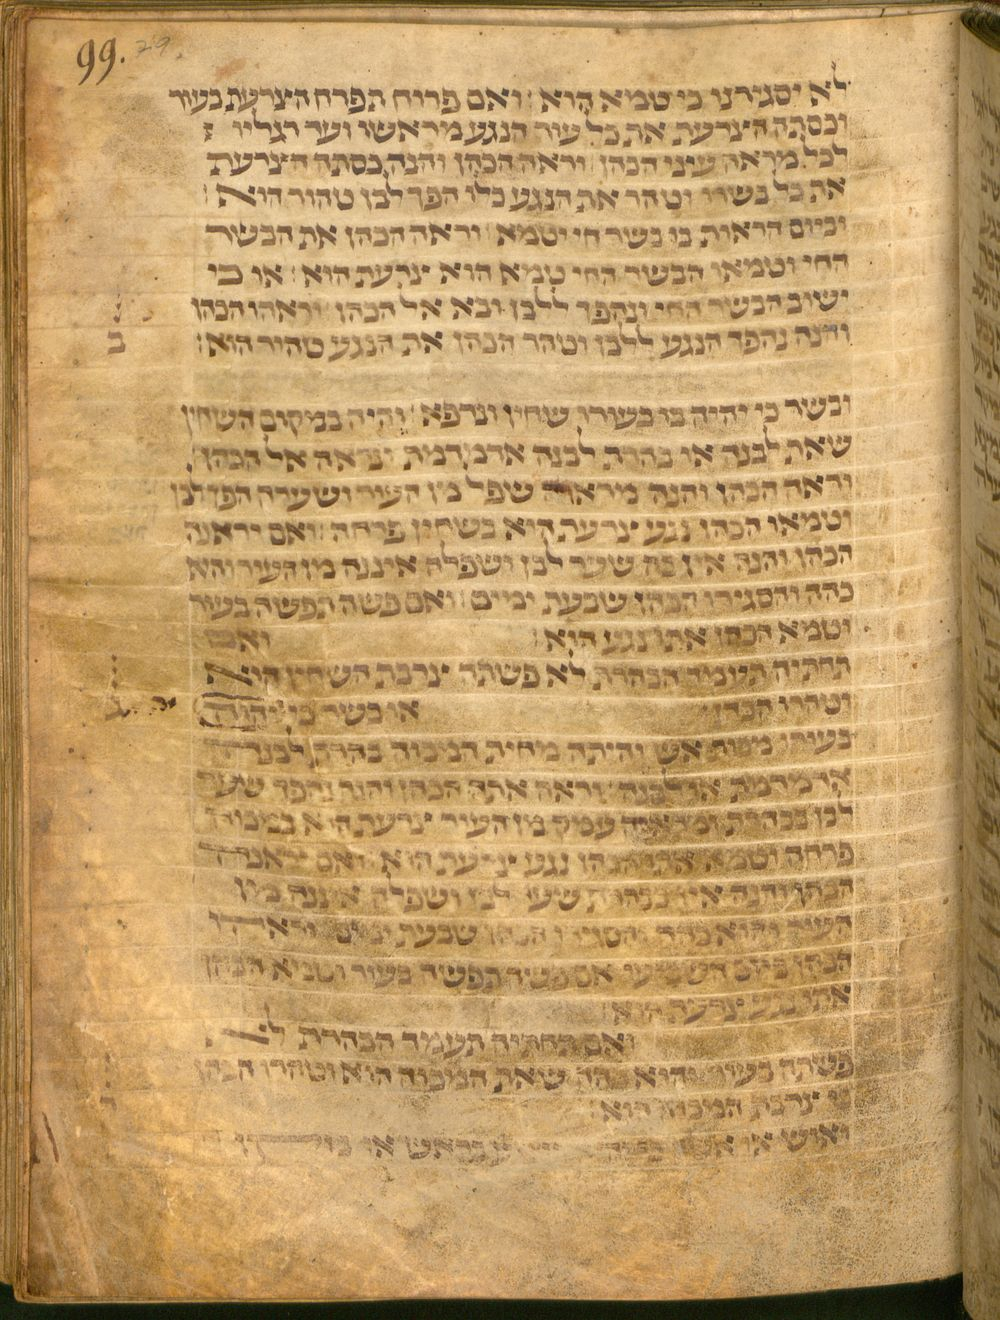 99. 29
לא יסגירנו כי טמא הוא׃ ואם פרוח תפרח הצרעת בעור
וכסתה הצרעת את כל עור הנגע מראשו ועד רגליו
לכל מראה עיני הכהן׃ וראה הכהן והנה כסתה הצרעת
את כל בשרו וטהר את הנגע כלו הפך לבן טהור הוא׃
וביום הראות בו בשר חי יטמא׃ וראה הכהן את הבשר
החי וטמאו הבשר החי טמא הוא צרעת הוא׃ או כי
ישוב הבשר החי ונהפך ללבן ובא אל הכהן׃ וראהו הכהן
והנה נהפך הנגע ללבן וטהר הכהן את הנגע טהור הוא׃
ב
ובשר כי יהיה בו בעורו שחין ונרפא׃ והיה במקום השחין
שאת לבנה או בהרת לבנה אדמדמת ונראה אל הכהן׃
וראה הכהן והנה מראה שפל מן העור ושערה הפך לבן
וטמאו הכהן נגע צרעת הוא בשחין פרחה׃ ואם יראנה
הכהן והנה אין בה שער לבן ושפלה איננה מן העור והיא
כהה והסגירו הכהן שבעת ימים׃ ואם פשה תפשה בעור
וטמא הכהן אתו נגע הוא׃ ואם
תחתיה תעמד הבהרת לא פשתה צרבת השחין הוא
וטהרו הכהן׃ או בשר כי יהיה
בעורו מכות אש והיתה מחית המכוה בהרת לבנה
אדמדמת או לבנה׃ וראה אתה הכהן והנה נהפך שער
לבן בבהרת ומראיה עמק מן העור צרעת הוא במכוה
פרחה וטמא אתו הכהן נגע צרעת הוא׃ ואם יראנה
הכהן והנה אין בבהרת שער לבן ושפלה איננה מן
העור והוא כהה והסגירו הכהן שבעת ימים׃ וראהו
הכהן ביום השביעי אם פשה תפשה בעור וטמא הכהן
אתו נגע צרעת הוא׃
ואם תחתיה תעמד הבהרת לא
פשתה בעור והוא כהה שאת המכוה הוא וטהרו הכהן
כי צרבת המכוה הוא׃
ואיש או אשה כי יהיה בו נגע בראש או בזקן